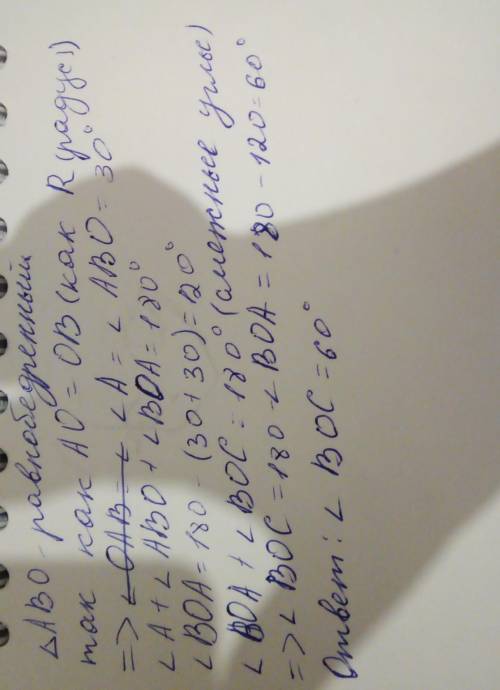 △ABO - равнобедренный
так как AO = OB (как R (радус))
=> ∠ OAB = ∠ ∠A = ∠ ABO = 30°
∠A + ∠ ABO + ∠BOA = 180°
∠BOA = 180 - (30 + 30) = 120°
∠ BOA + ∠ BOC = 180° (смежные углы)
=> ∠ BOC = 180 - ∠ BOA = 180 - 120 = 60°
Ответ: ∠ BOC = 60°